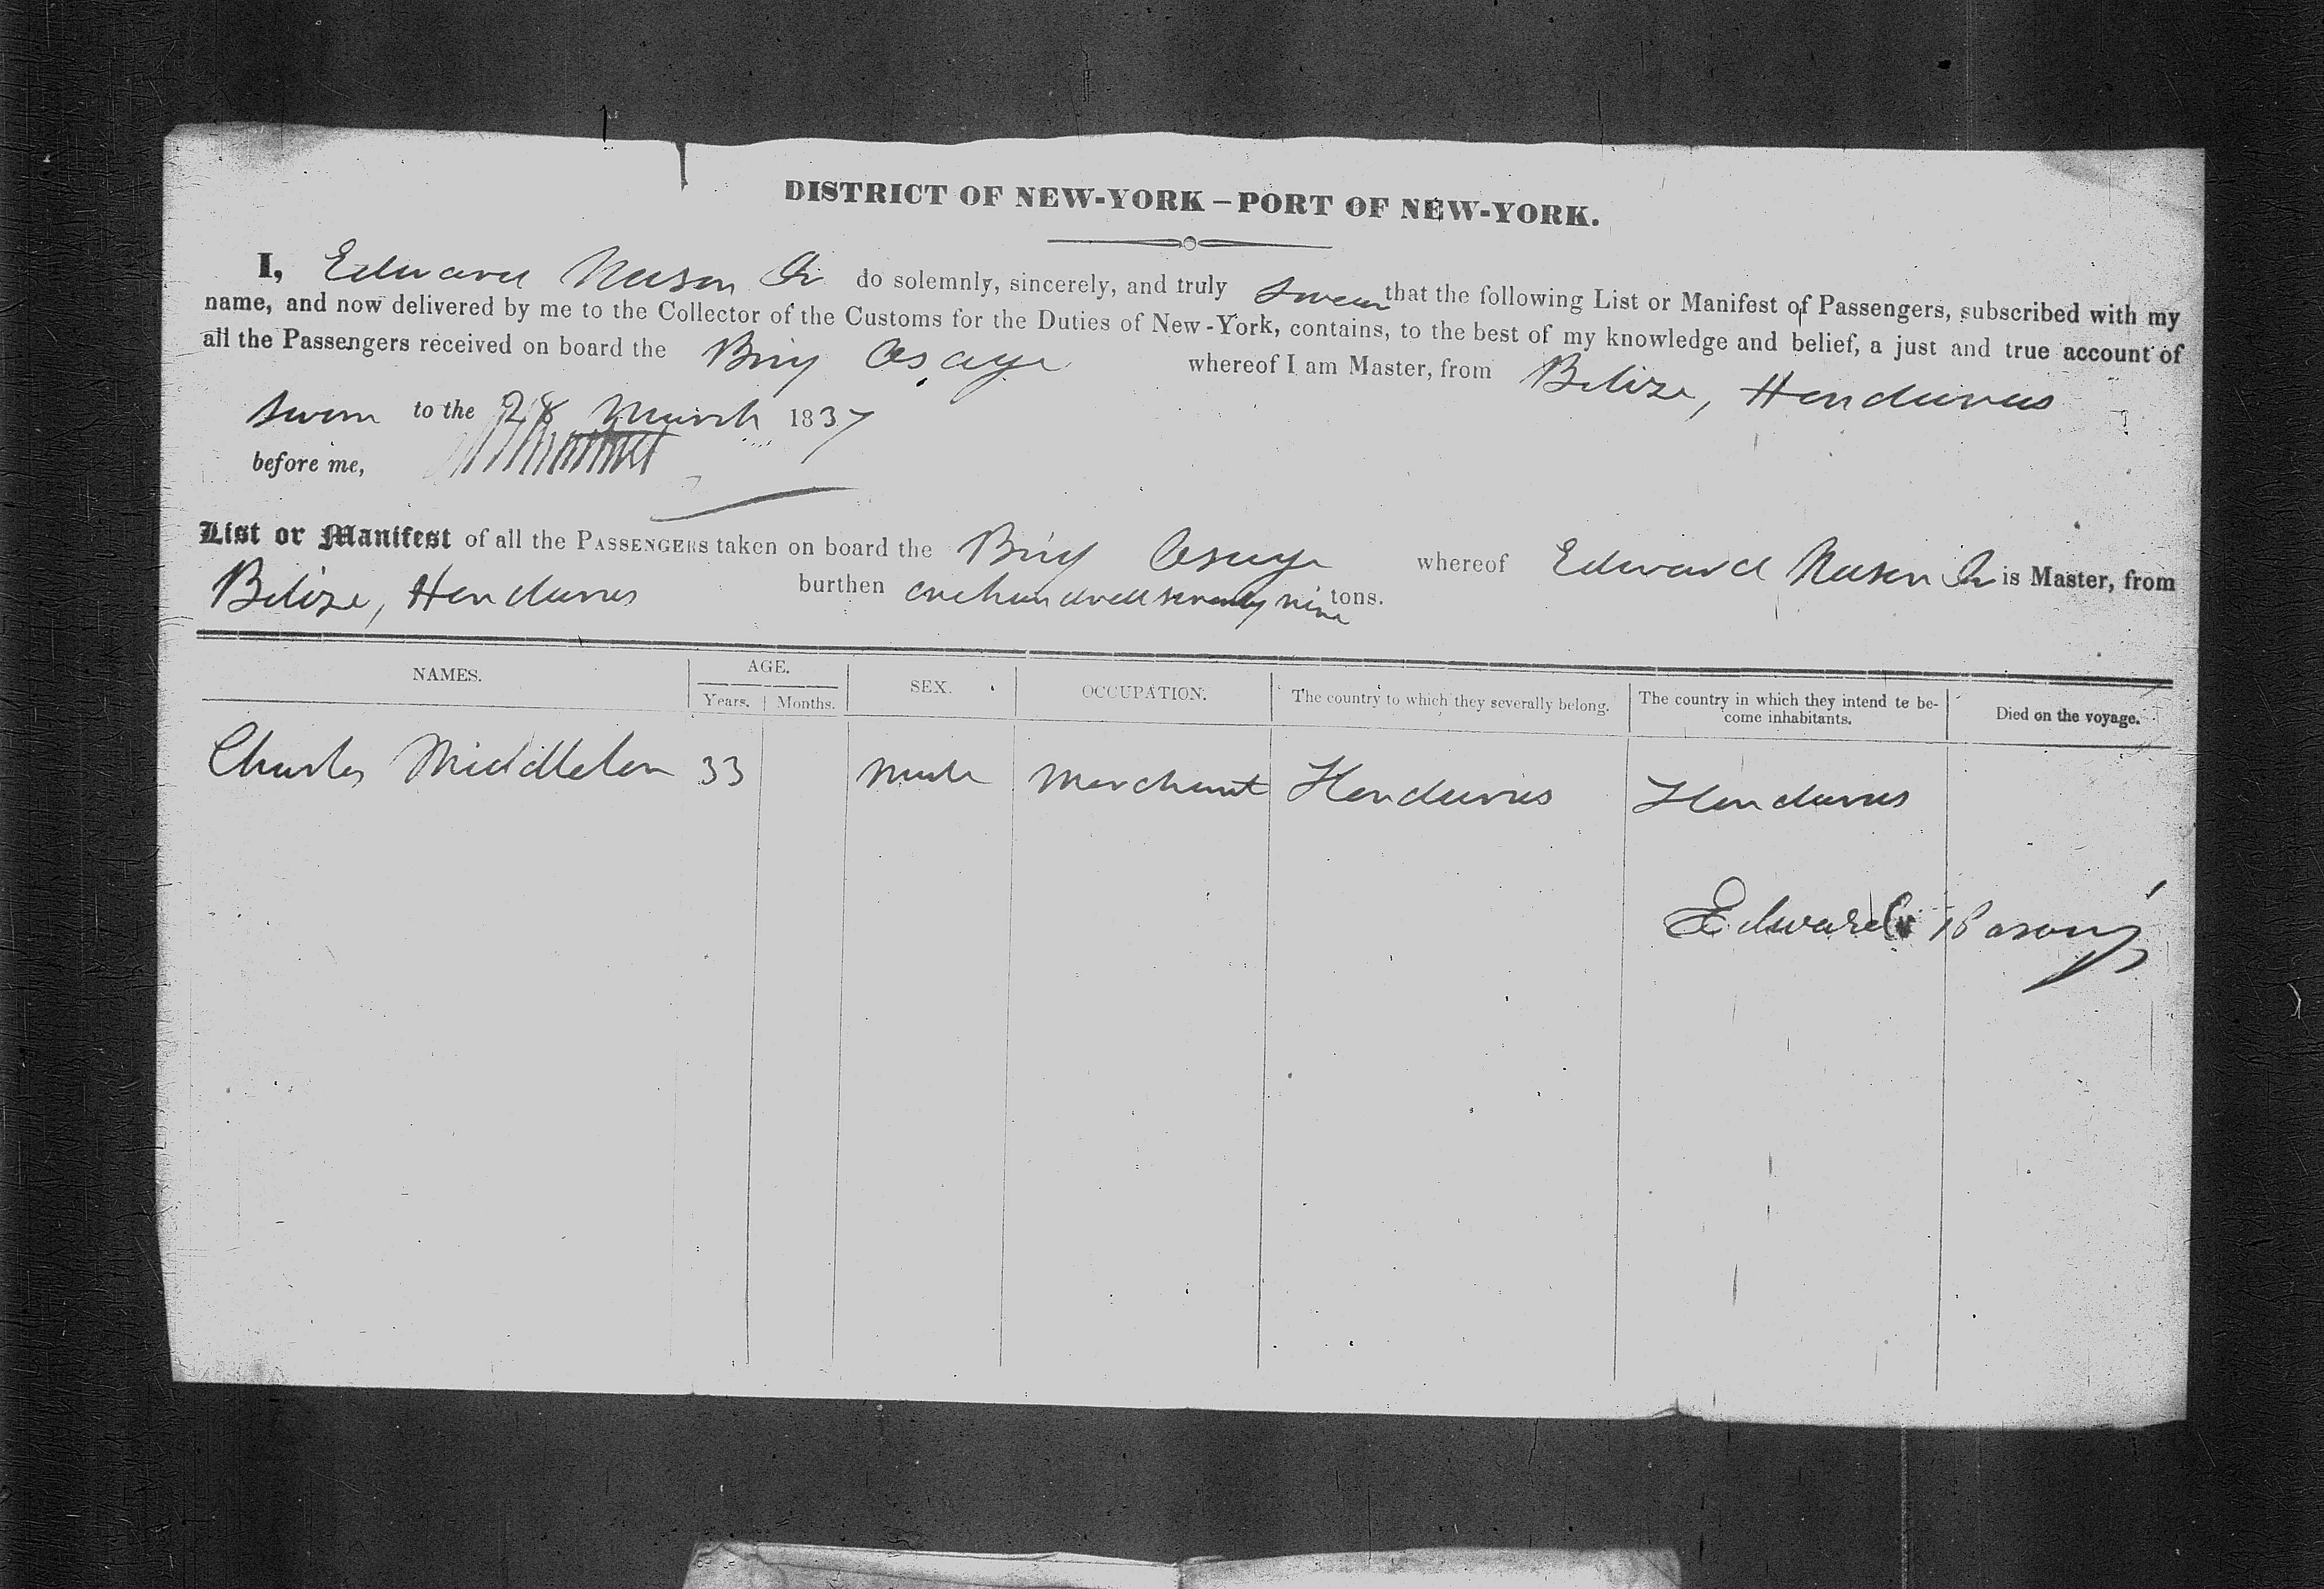 DISTRICT OF NEW-YORK – PORT OF NEW-YORK.
I, Edward Nason Jr do solemnly, sincerely, and truly swear that the following List or Manifest of Passengers, subscribed with my
name, and now delivered by me to the Collector of the Customs for the Duties of New-York, contains, to the best of my knowledge and belief, a just and true account of
all the Passengers received on board the Brig Osage whereof I am Master, from Belize, Honduras
Sworn to the 28 March 1837
before me,
List or Manifest of all the PASSENGERS taken on board the Brig Osage whereof Edward Nason Jr is Master, from
Belize, Honduras burthen one hundred seventy nine tons.
NAMES. AGE. SEX. OCCUPATION. The country to which they severally belong. The country in which they intend to be-
come inhabitants. Died on the voyage.
Years. Months.
Charles Middleton 33 male Merchant Honduras Honduras
Edward Nason Jr